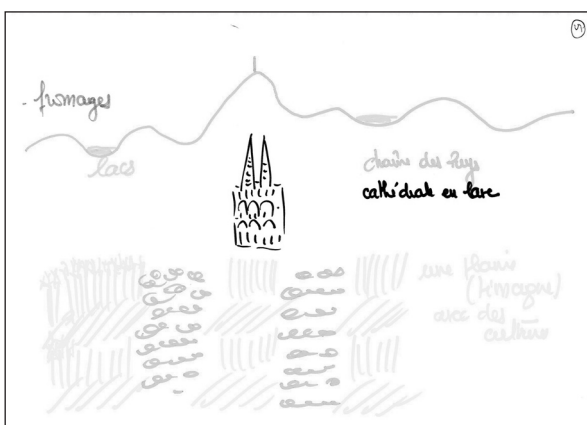 5
- fromages
lacs
chaîne des Puys
cathédrale en lave
une plaine
(Limagne)
avec des
cultures